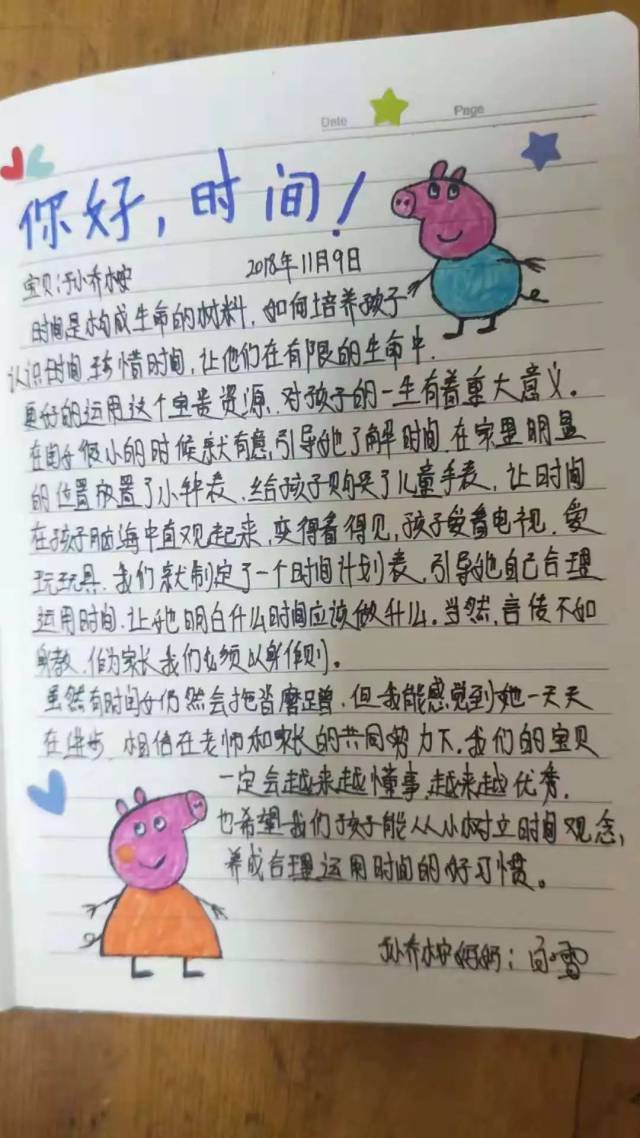 Date Page
你好，时间！
宝贝：孙乔桉 2018年11月9日
时间是构成生命的材料，如何培养孩子
认识时间珍惜时间，让他们在有限的生命中，
更好的运用这个宝贵资源、对孩子的一生有着重大意义。
在很小的时候就有意，引导她了解时间，在家里明显
的位置放置了小钟表，给孩子购买了儿童手表，让时间
在孩子脑海中直观起来，变得看得见，孩子爱看电视，爱
玩玩具，我们就制定了一个时间计划表，引导她自己合理
运用时间，让她明白什么时间应该做什么。当然，言传不如
身教，作为家长我们必须以身作则。
虽然有时间仍然会拖沓磨蹭，但我能感觉到她一天天
在进步，相信在老师和家长的共同努力下，我们的宝贝
一定会越来越懂事，越来越优秀，
也希望我们孩子能从小树立时间观念，
养成合理运用时间的好习惯。
孙乔桉妈妈：白雪